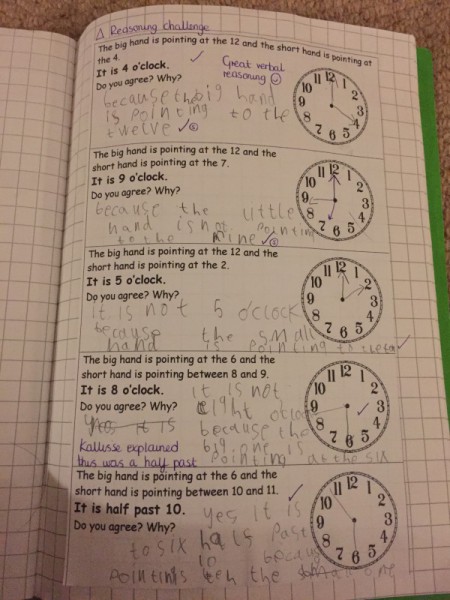 Δ Reasoning challenge
The big hand is pointing at the 12 and the short hand is pointing at
the 4.
It is 4 o'clock.
Do you agree? Why?
Great verbal
reasoning
because the big hand
is pointing to the
twelve
11 12 1
10 2
9 3
8 4
7 6 5
The big hand is pointing at the 12 and the
short hand is pointing at the 7.
It is 9 o'clock.
Do you agree? Why?
because the little
hand is not pointing
to the nine
11 12 1
10 2
9 3
8 4
7 6 5
The big hand is pointing at the 12 and the
short hand is pointing at the 2.
It is 5 o'clock.
Do you agree? Why?
it is not 5 o'clock
because the small
hand is pointing to the
11 12 1
10 2
9 3
8 4
7 6 5
The big hand is pointing at the 6 and the
short hand is pointing between 8 and 9.
It is 8 o'clock.
Do you agree? Why?
it is not
eight
yes it is because the
big one is
pointing at the six
Kallisse explained
this was a half past
11 12 1
10 2
9 3
8 4
7 6 5
The big hand is pointing at the 6 and the
short hand is pointing between 10 and 11.
It is half past 10.
Do you agree? Why?
yes it is
past
to six
the one
11 12 1
10 2
9 3
8 4
7 6 5